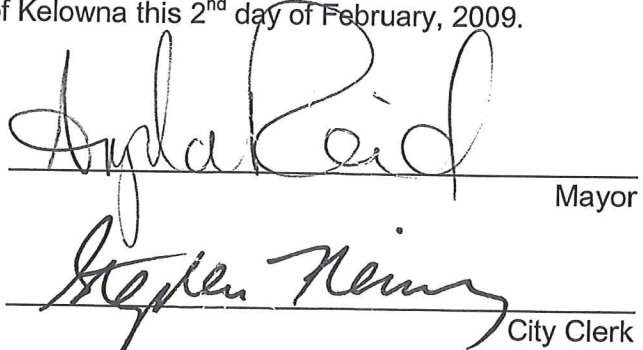 f Kelowna this 2nd day of February, 2009.
Reid
Mayor
Stephen
City Clerk